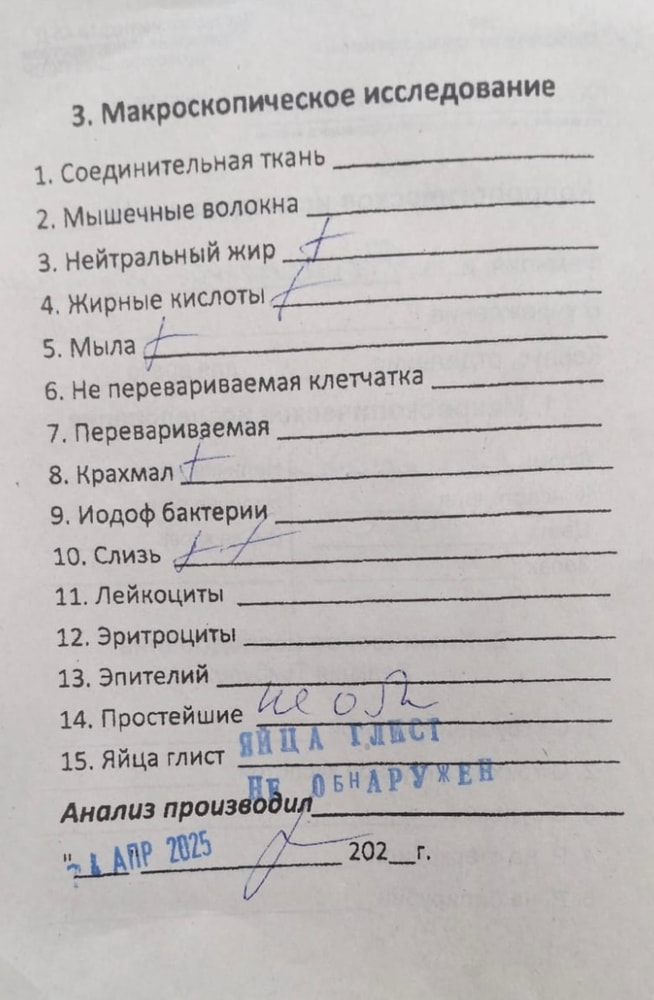 3. Макроскопическое исследование
1. Соединительная ткань
2. Мышечные волокна
3. Нейтральный жир +
4. Жирные кислоты +
5. Мыла +
6. Не перевариваемая клетчатка
7. Перевариваемая
8. Крахмал +
9. Иодоф бактерии
10. Слизь + +
11. Лейкоциты
12. Эритроциты
13. Эпителий
14. Простейшие не обн
15. Яйца глист ЯЙЦА ГЛИСТ
НЕ ОБНАРУЖЕН
Анализ производил
" " АПР 2025 202__г.